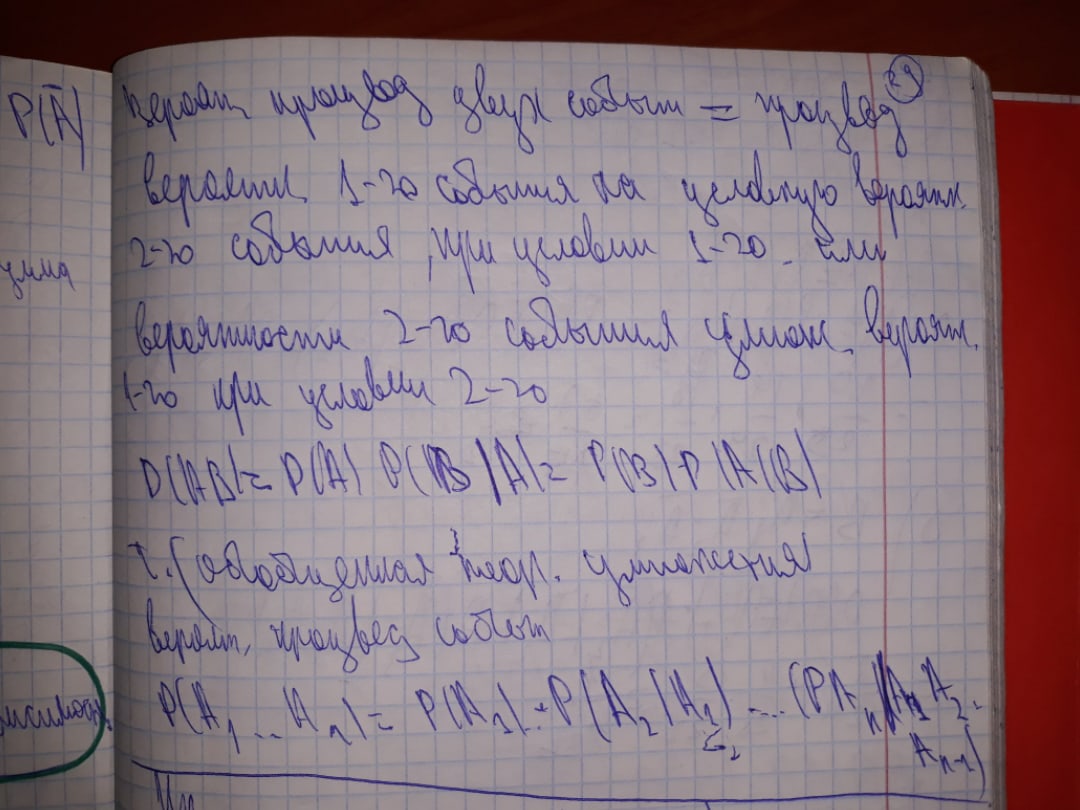 P(Ā)
29
вероят. произвед двух событ = произвед
вероятн. 1-го события на условную вероятн.
2-го события, при условии 1-го. или
вероятности 2-го события умнож. вероят.
1-го при условии 2-го
P(AB)= P(A) P(B|A)= P(B)·P(A|B)
т. (обобщенная теор. умножения)
вероят. произвед событ
P(A₁... Aₙ)= P(A₁)·P(A₂|A₁)·...(PAₙ|A₁A₂.
Aₙ₋₁)